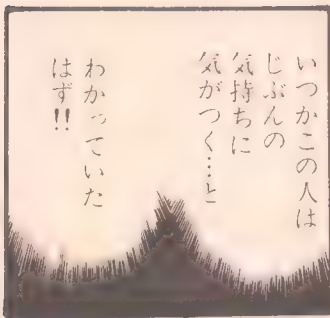 いつかこの人は
じぶんの
気持ちに
気がつく…と
わかっていた
はず!!